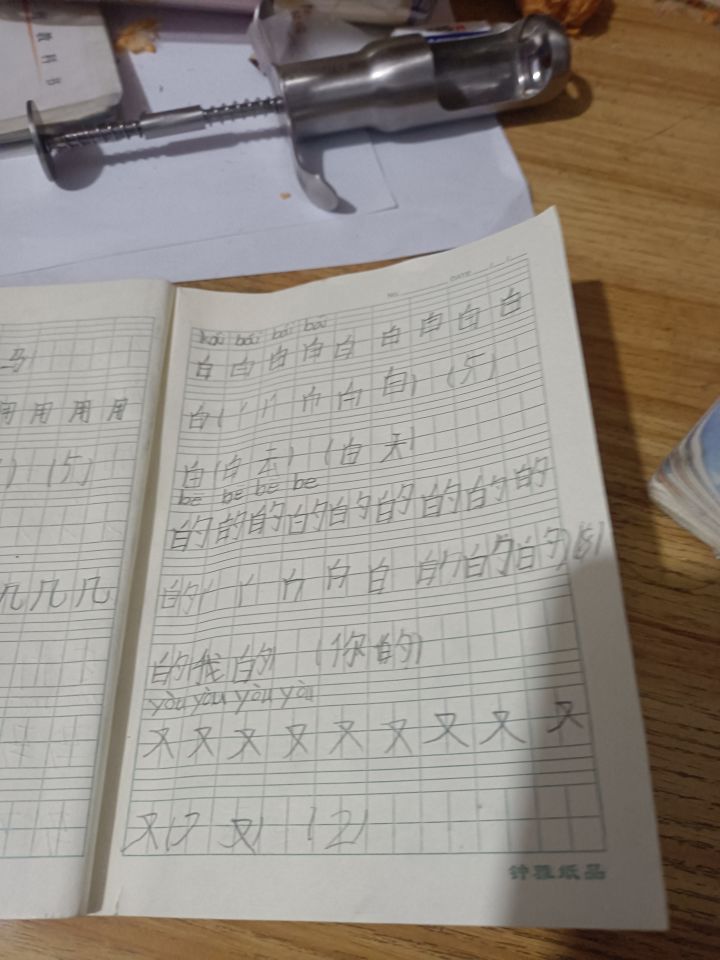 教科书
NO.
DATE
马
用 用 用 用
(5)
几 几 几
bái bái bái
白 白 白 白 白 白 白 白 白
白( 丿 亻 白 白 白) (5)
白(白 云) (白 天)
be be be be
的 的 的 的 的 的 的 的 的
的( 丿 亻 白 白 的 的)(8)
的(我 的) (你 的)
yòu yòu yòu yòu
又 又 又 又 又 又 又 又 又
又(フ 又) (2)
钟雅纸品